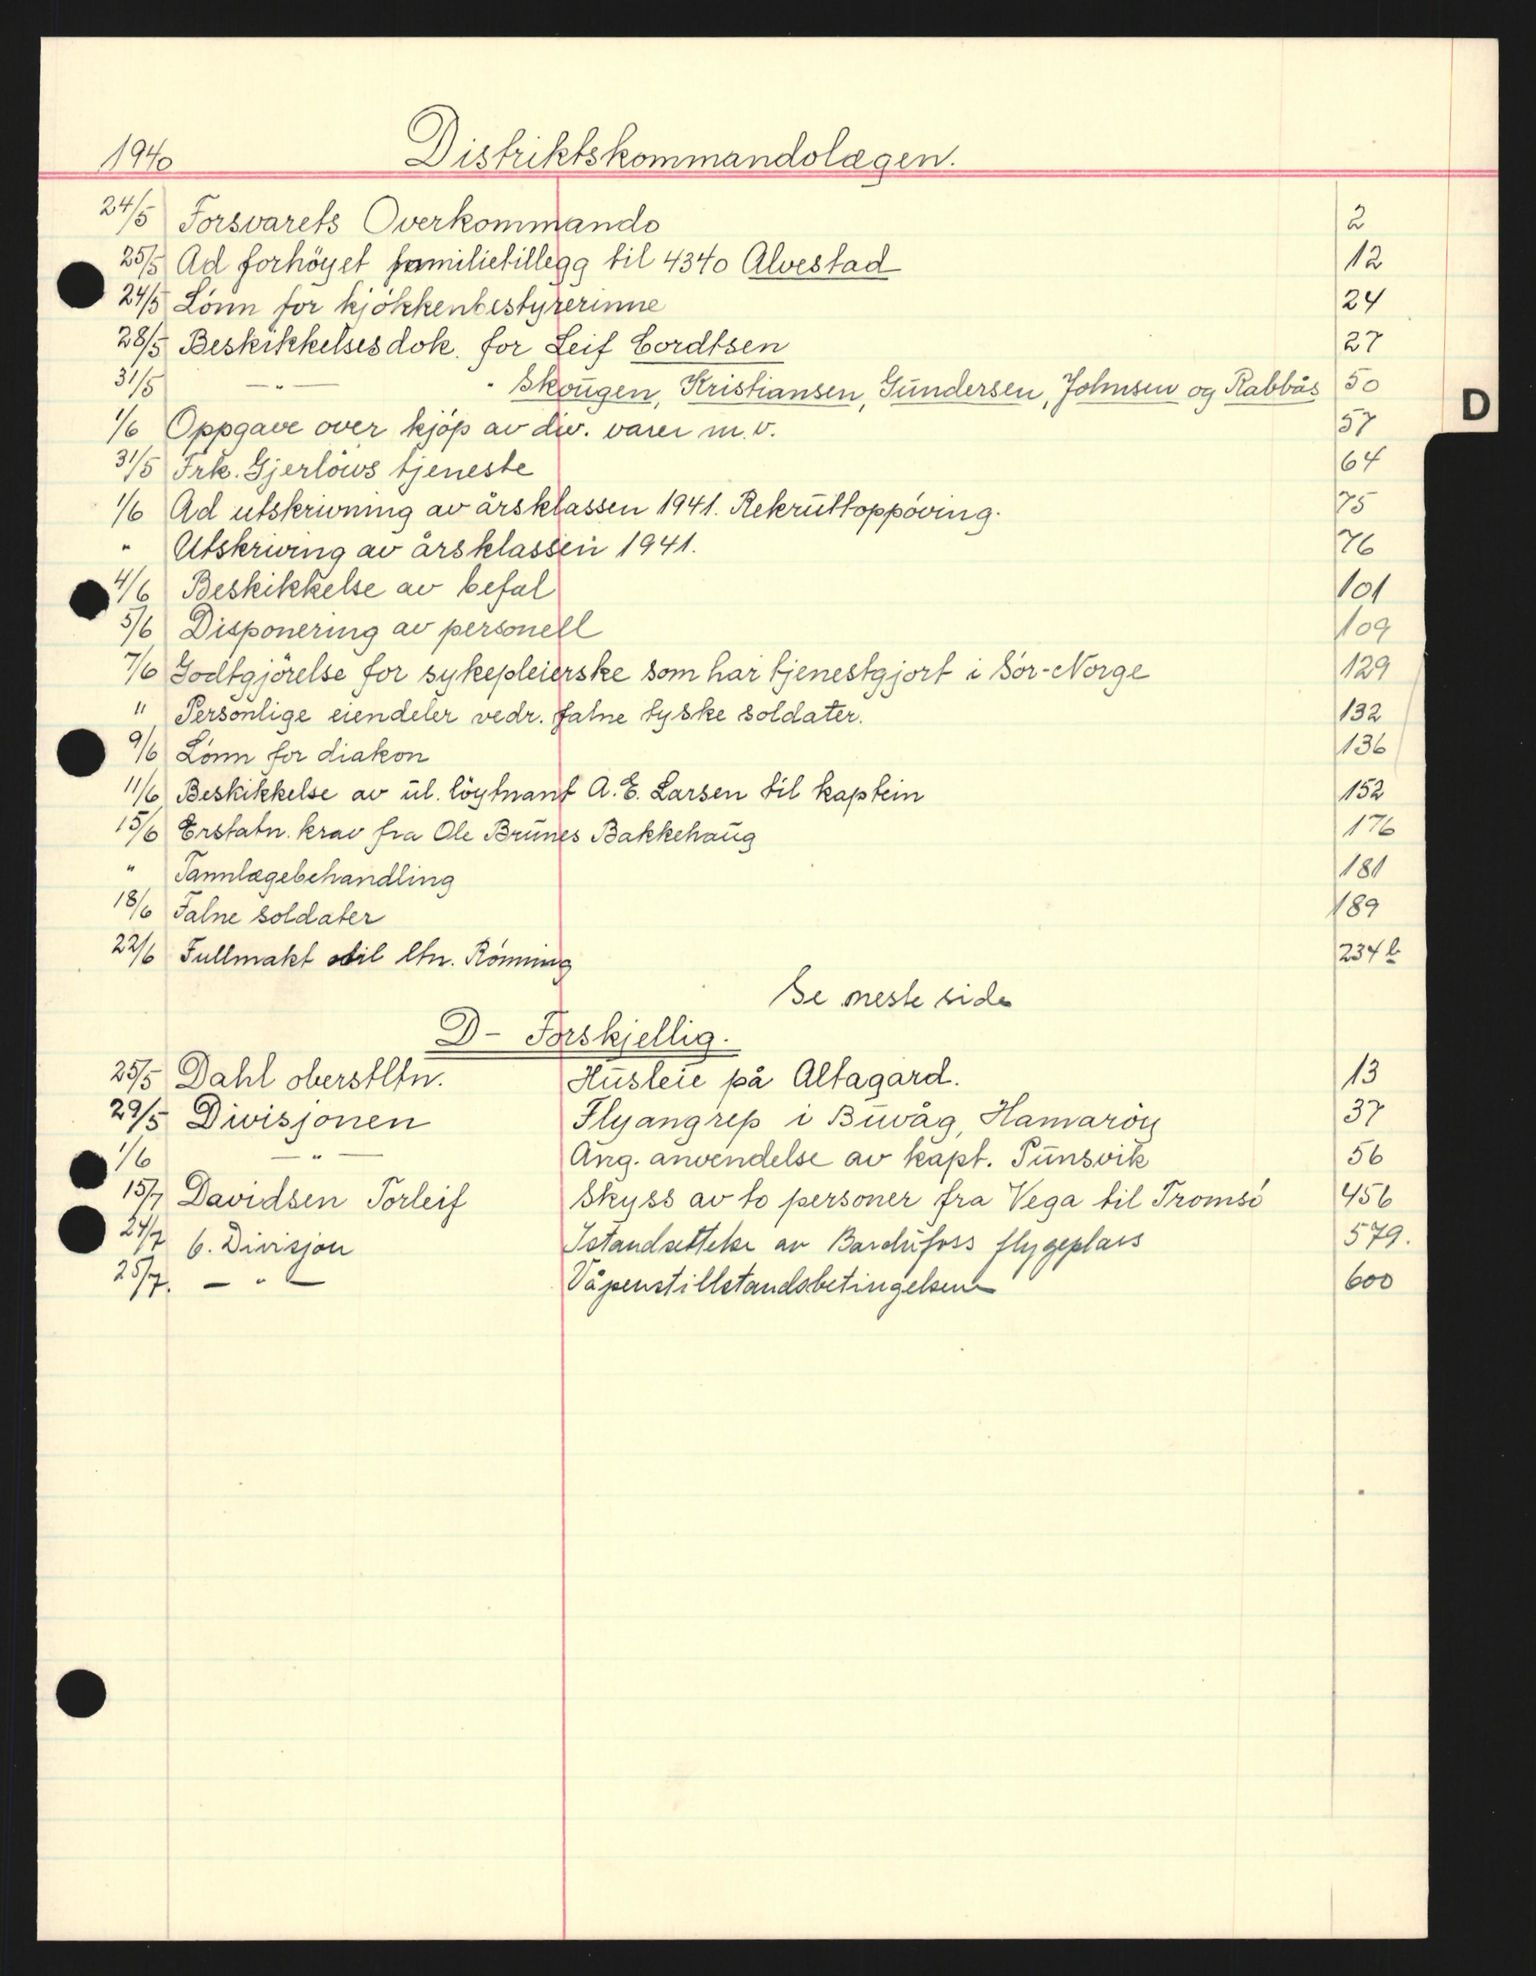 1940 Distriktskommandolægen.
24/5 Forsvarets Overkommando 2
25/5 Ad forhöyet familietillegg til 4340 Alvestad 12
24/5 Lónn for kjökkenbestyrerinne 24
28/5 Beskikkelsesdok. for Leif Cordtsen 27
31/5 —"— " Skougen, Kristiansen, Gundersen, Johnsen og Rabbås 50
D
1/6 Oppgave over kjóp av div. varer m.v. 57
31/5 Frk. Gjerlöws tjeneste 64
1/6 Ad utskrivning av årsklassen 1941. Rekruttoppóving. 75
" Utskriving av årsklassen 1941. 76
4/6 Beskikkelse av befal 101
5/6 Disponering av personell 109
7/6 Godtgjörelse for sykepleierske som har tjenestgjort i Sór-Norge 129
" Personlige eiendeler vedr. falne tyske soldater. 132
9/6 Lónn for diakon 136
11/6 Beskikkelse av ul. löytnant A.E. Larsen til kaptein 152
15/6 Erstatn. krav fra Ole Brunes Bakkehaug 176
" Tannlægebehandling 181
18/6 Falne soldater 189
22/6 Fullmakt til ltn. Rónning 234 b
Se neste side
D- Forskjellig.
25/5 Dahl oberstltn. Husleie på Altagard. 13
29/5 Divisjonen Flyangrep i Buvåg, Hamaröy 37
1/6 —"— Ang. anvendelse av kapt. Punsvik 56
15/7 Davidsen Torleif Skyss av to personer fra Vega til Tromsó 456
24/7 6. Divisjon Istandsettelse av Bardufoss flygeplass 579.
25/7. —"— Våpenstillstandsbetingelsene 600